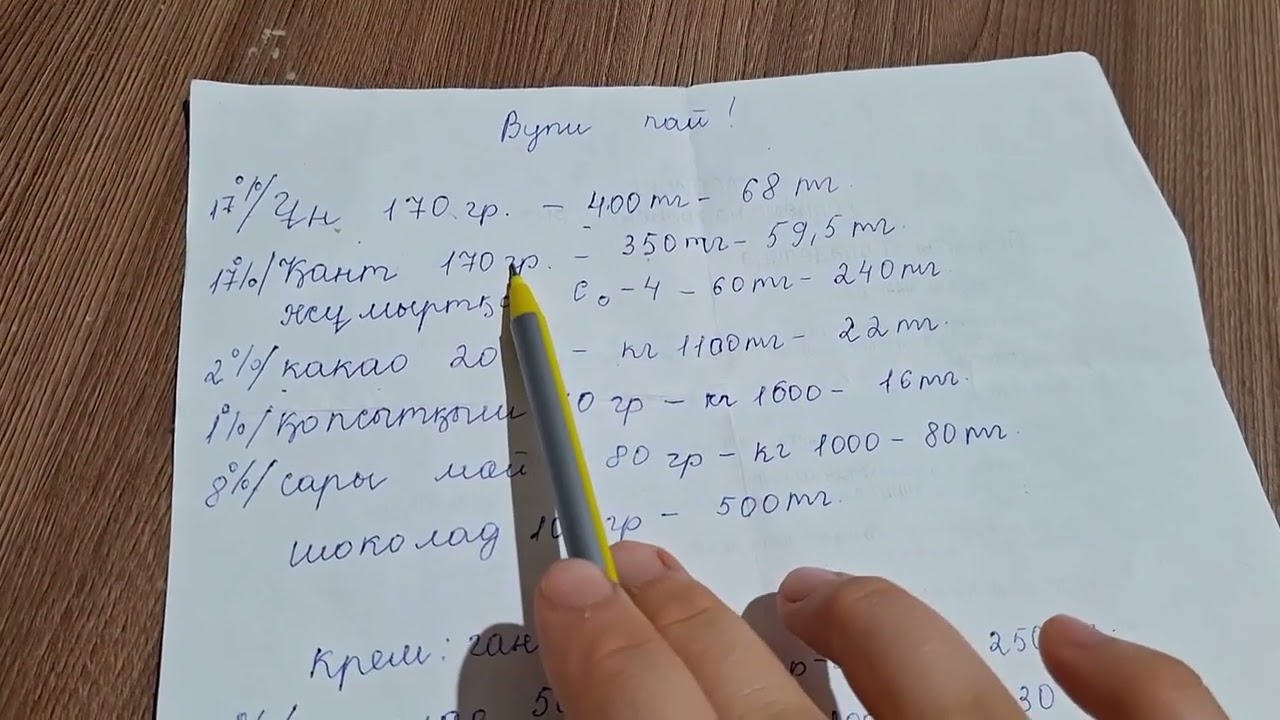 Вупи пай!
17%/ Ұн 170 гр. – 400 тг – 68 тг.
17%/ Қант 170 гр. – 350 тг – 59,5 тг.
жұмыртқа Со – 4 – 60 тг – 240 тг
2%/ какао 20 – кг 1100 тг – 22 тг.
1%/ қопсытқыш 10 гр – кг 1600 – 16 тг.
8%/ сары май 80 гр – кг 1000 – 80 тг.
шоколад гр – 500 тг.
Крем:
30